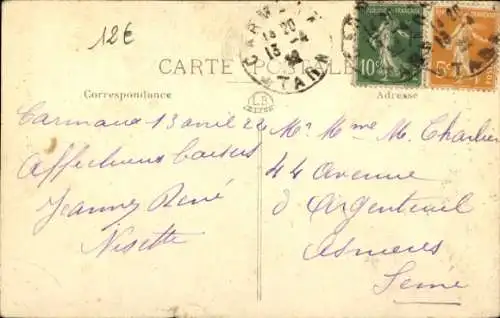 12€
CARMAUX
18 20
13 -4
22
TARN
RÉPUBLIQUE FRANÇAISE
10c
5c
CARTE POSTALE
LB
Correspondance
Adresse
Carmaux 13 avril 22
Affectueux baisers
Jeanne René
Nisette
Mr Mme M. Charlier
44 Avenue
d'Argenteuil
Asnieres
Seine